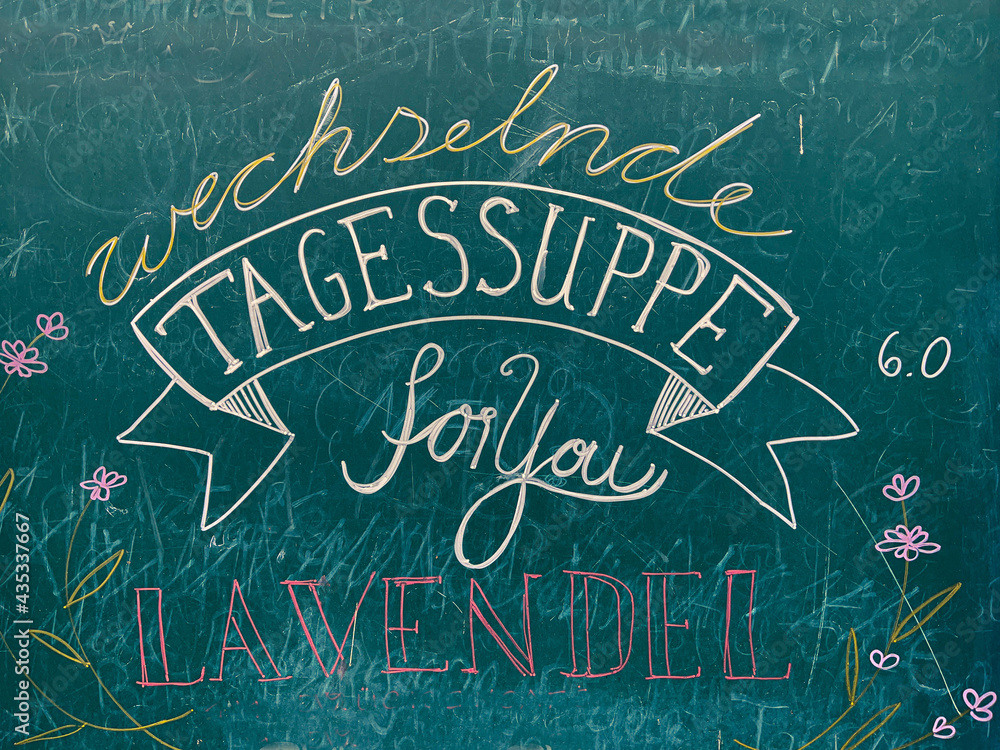 wechselnde
TAGESSUPPE
6.0
for You
LAVENDEL
Adobe Stock | #435337667